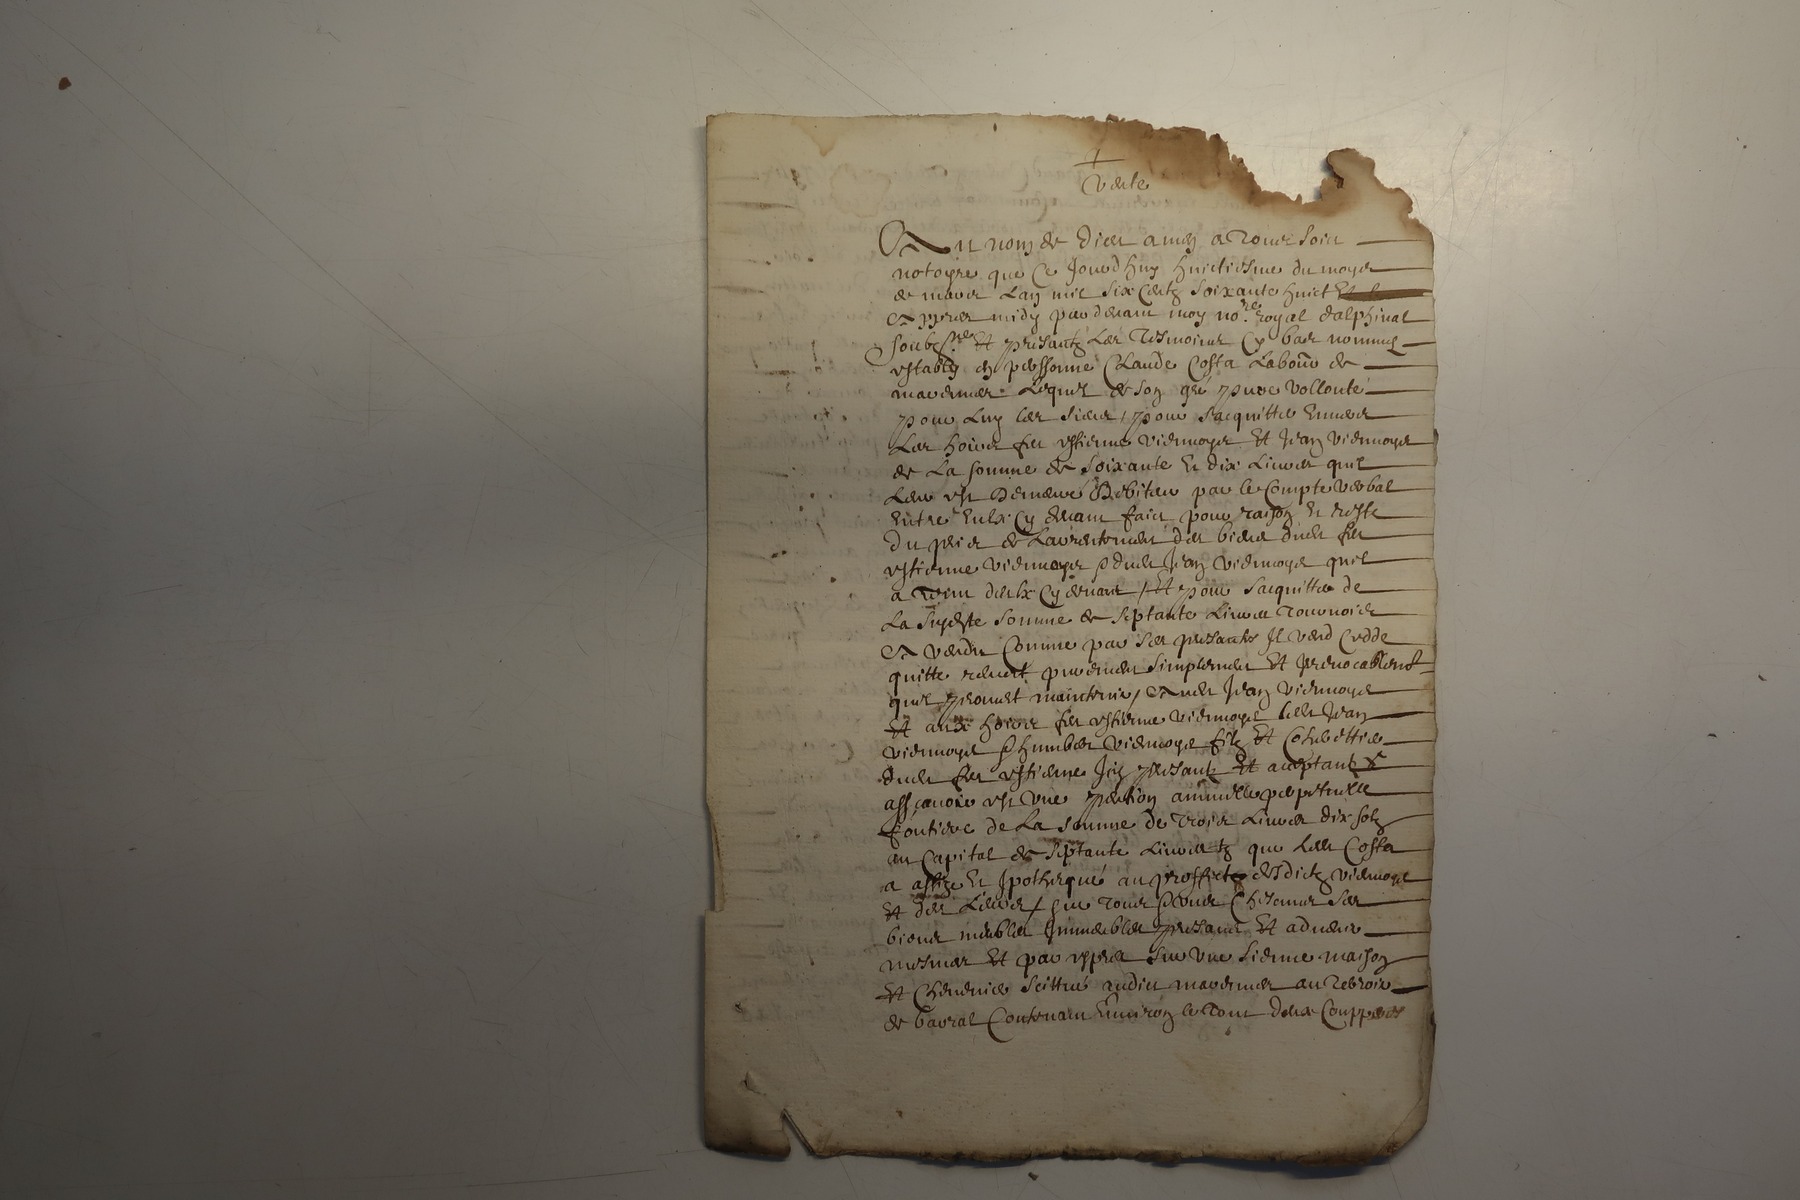 +
Vente
Au nom de dieu amen a Tous soict
notoyre que ce Jourdhuy huictiesme du moys
de mars Lan mil six centz soixante huict
Appres midy par devant moy no.re royal dalphinal
soubz.né et presantz Les Tesmoins cy bas nommes
estably en personne Claude Costa Labour de
Lequel de son gré pure vollonté
pour Luy les siens / pour sacquitter Envers
Les hoirs feu estienne viennoys et Jean viennoys
de La somme de soixante et dix Livres quil
Leur est demeuré debiteur par le compte verbal
Entre Eulx cy devant faict pour raison et reste
du prix de des biens dudit feu
estienne viennoys & dudit Jean viennoys quil
a deulx cy devant / et pour sacquitter de
La susdite somme de septante Livres Tournois
A vendu comme par ses presantes Il vend cedde
quitte remect purement simplement et Irrevocablemt
quil promet maintenir / Audit Jean viennoys
et aux hoirs feu estienne viennoys ledit Jean
viennoys & humber viennoys filz et coheritier
dudit feu estienne Icy presantz et aceptantz
assavoir est une pention annuelle perpetuelle
fontiere de La somme de Trois Livres dix solz
au Capital de septante Livres tz que ledit Costa
a assize et Ipothequé au proffict desdictz viennoys
et des Leurs / sur Tous & ungs chescungs ses
biens meubles Immeubles presans et advenir
mesmes et par expres sur une sienne maison
et Cheneviere scittué audict au Terroir
de barral Contenant Environ le Tout deux Couppees